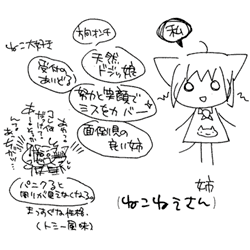 ねこ大好き
方向オンチ
私
受付の
あいどる
天然
ドジッ娘
努力と笑顔で
ミスをカバー
面倒見の
良い姉
パニクると
周りが見えなくなる。
まっすぐな性格。
(トミー風味)
姉
(ねこねえさん)